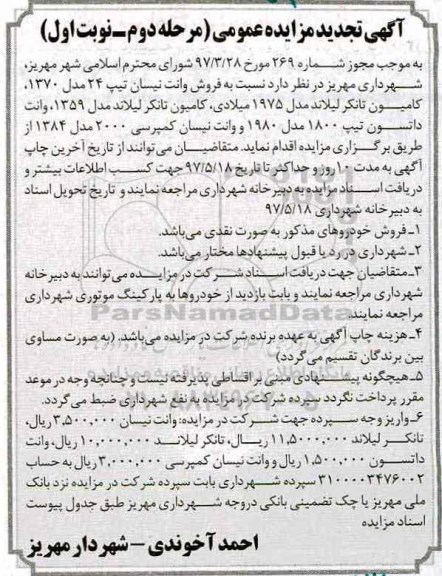 آگهی تجدید مزایده عمومی (مرحله دوم ـ نوبت اول)
به موجب مجوز شماره ۲۶۹ مورخ ۹۷/۳/۲۸ شورای محترم اسلامی شهر مهریز،
شهرداری مهریز در نظر دارد نسبت به فروش وانت نیسان تیپ ۲۴ مدل ۱۳۷۰،
کامیون تانکر لیلاند مدل ۱۹۷۵ میلادی، کامیون تانکر لیلاند مدل ۱۳۵۹، وانت
داتسون تیپ ۱۸۰۰ مدل ۱۹۸۰ و وانت نیسان کمپرسی ۲۰۰۰ مدل ۱۳۸۴ از
طریق برگزاری مزایده اقدام نماید. متقاضیان می‌توانند از تاریخ آخرین چاپ
آگهی به مدت ۱۰ روز و حداکثر تا تاریخ ۹۷/۵/۱۸ جهت کسب اطلاعات بیشتر و
دریافت اسناد مزایده به دبیرخانه شهرداری مراجعه نمایند و تاریخ تحویل اسناد
به دبیرخانه شهرداری ۹۷/۵/۱۸
۱ـ فروش خودروهای مذکور به صورت نقدی می‌باشد.
۲ـ شهرداری در رد یا قبول پیشنهادها مختار می‌باشد.
۳ـ متقاضیان جهت دریافت اسناد شرکت در مزایده می‌توانند به دبیرخانه
شهرداری مراجعه نمایند و بابت بازدید از خودروها به پارکینگ موتوری شهرداری
مراجعه نمایند.
ParsNamadData
۴ـ هزینه چاپ آگهی به عهده برنده شرکت در مزایده می‌باشد. (به صورت مساوی
بین برندگان تقسیم می‌گردد)
۵ـ هیچگونه پیشنهادی مبنی بر اقساطی پذیرفته نیست و چنانچه وجه در موعد
مقرر پرداخت نگردد سپرده شرکت در مزایده به نفع شهرداری ضبط می‌گردد.
۶ـ واریز وجه سپرده جهت شرکت در مزایده: وانت نیسان ۳,۵۰۰,۰۰۰ ریال،
تانکر لیلاند ۱۱,۵۰۰,۰۰۰ ریال، تانکر لیلاند ۱۰,۰۰۰,۰۰۰ ریال، وانت
داتسون ۱,۵۰۰,۰۰۰ ریال و وانت نیسان کمپرسی ۳,۰۰۰,۰۰۰ ریال به حساب
۳۱۰۰۰۰۳۴۷۶۰۰۲ سپرده شهرداری بابت سپرده شرکت در مزایده نزد بانک
ملی مهریز یا چک تضمینی بانکی در وجه شهرداری مهریز طبق جدول پیوست
اسناد مزایده
احمد آخوندی - شهردار مهریز